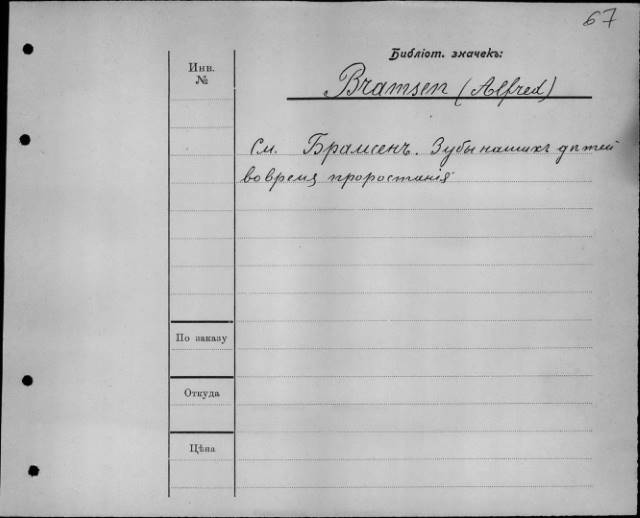 67
Библіот. значекъ:
Инв.
№
Bramsen (Alfred)
См. Брамсенъ. Зубы нашихъ дѣтей
во время проростанія
По заказу
Откуда
Цѣна